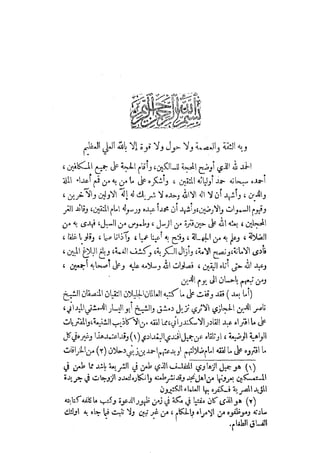 بسم الله الرحمن الرحيم
وبه الثقة والعصمة ولا حول ولا قوة إلا بالله العلي العظيم
الحمد لله الذي أوضح المحجة للسالكين، وأقام الحجة على جميع المكلفين،
أحمده سبحانه حمد أوليائه المتقين، وأشكره على ما من به من قمع أعداء الملة
والدين، وأشهد أن لا إله إلا الله وحده لا شريك له إله الأولين والآخرين،
وقيوم السموات والأرضين، وأشهد أن محمداً عبده ورسوله إمام المتقين، وقائد الغر
المحجلين، بعثه الله على حين فترة من الرسل، وطموس من السبل، فهدى به من
الضلالة، وعلم به من الجهالة، وفتح به أعيناً عمياً، وآذاناً صماً، وقلوباً غلفاً،
فأدى الأمانة، ونصح الأمة، وأزال الكربة، وكشف الغمة، وبلغ البلاغ المبين،
وعبد الله حتى أتاه اليقين، فصلوات الله وسلامه عليه وعلى أصحابه أجمعين،
ومن تبعهم بإحسان إلى يوم الدين
(أما بعد) فقد وقفت على ما كتبه العالمان الجليلان التقيان المنصفان الشيخ
ناصر الدين الحجازي الأثري نزيل دمشق والشيخ أبو اليسار الدمشقي الميداني،
على ما افتراه عبد القادر الاسكندراني، مما لفقه من الأكاذيب الشنيعة والمفتريات
الواهية الوضيعة، ارتقاء عن جميل أفندي البغدادي (١) وقد اعتمد هذا وغيره في كل
ما افتروه على ما لفقه إمام ضلالتهم أحمد بن زيني دحلان (٢) من الخرافات
(١) هو جميل الزهاوي المتفلسف الذي طعن في الشريعة بأشد مما طعن في
المستمسكين بعروتها من أهل نجد وقد نشر طعنه وانكاره لتعدد الزوجات في جريدة
المؤيد المصرية فكفره بها العلماء الكثيرون
(٢) هو الذي كان مفتياً في مكة في زمن ظهور الدعوة وكتب ما لفقه كتابته
حادثه وموظفوه من الأمراء والحكام، من غير تبين ولا تثبت فيما جاء به أولئك
الفساق الطغام.